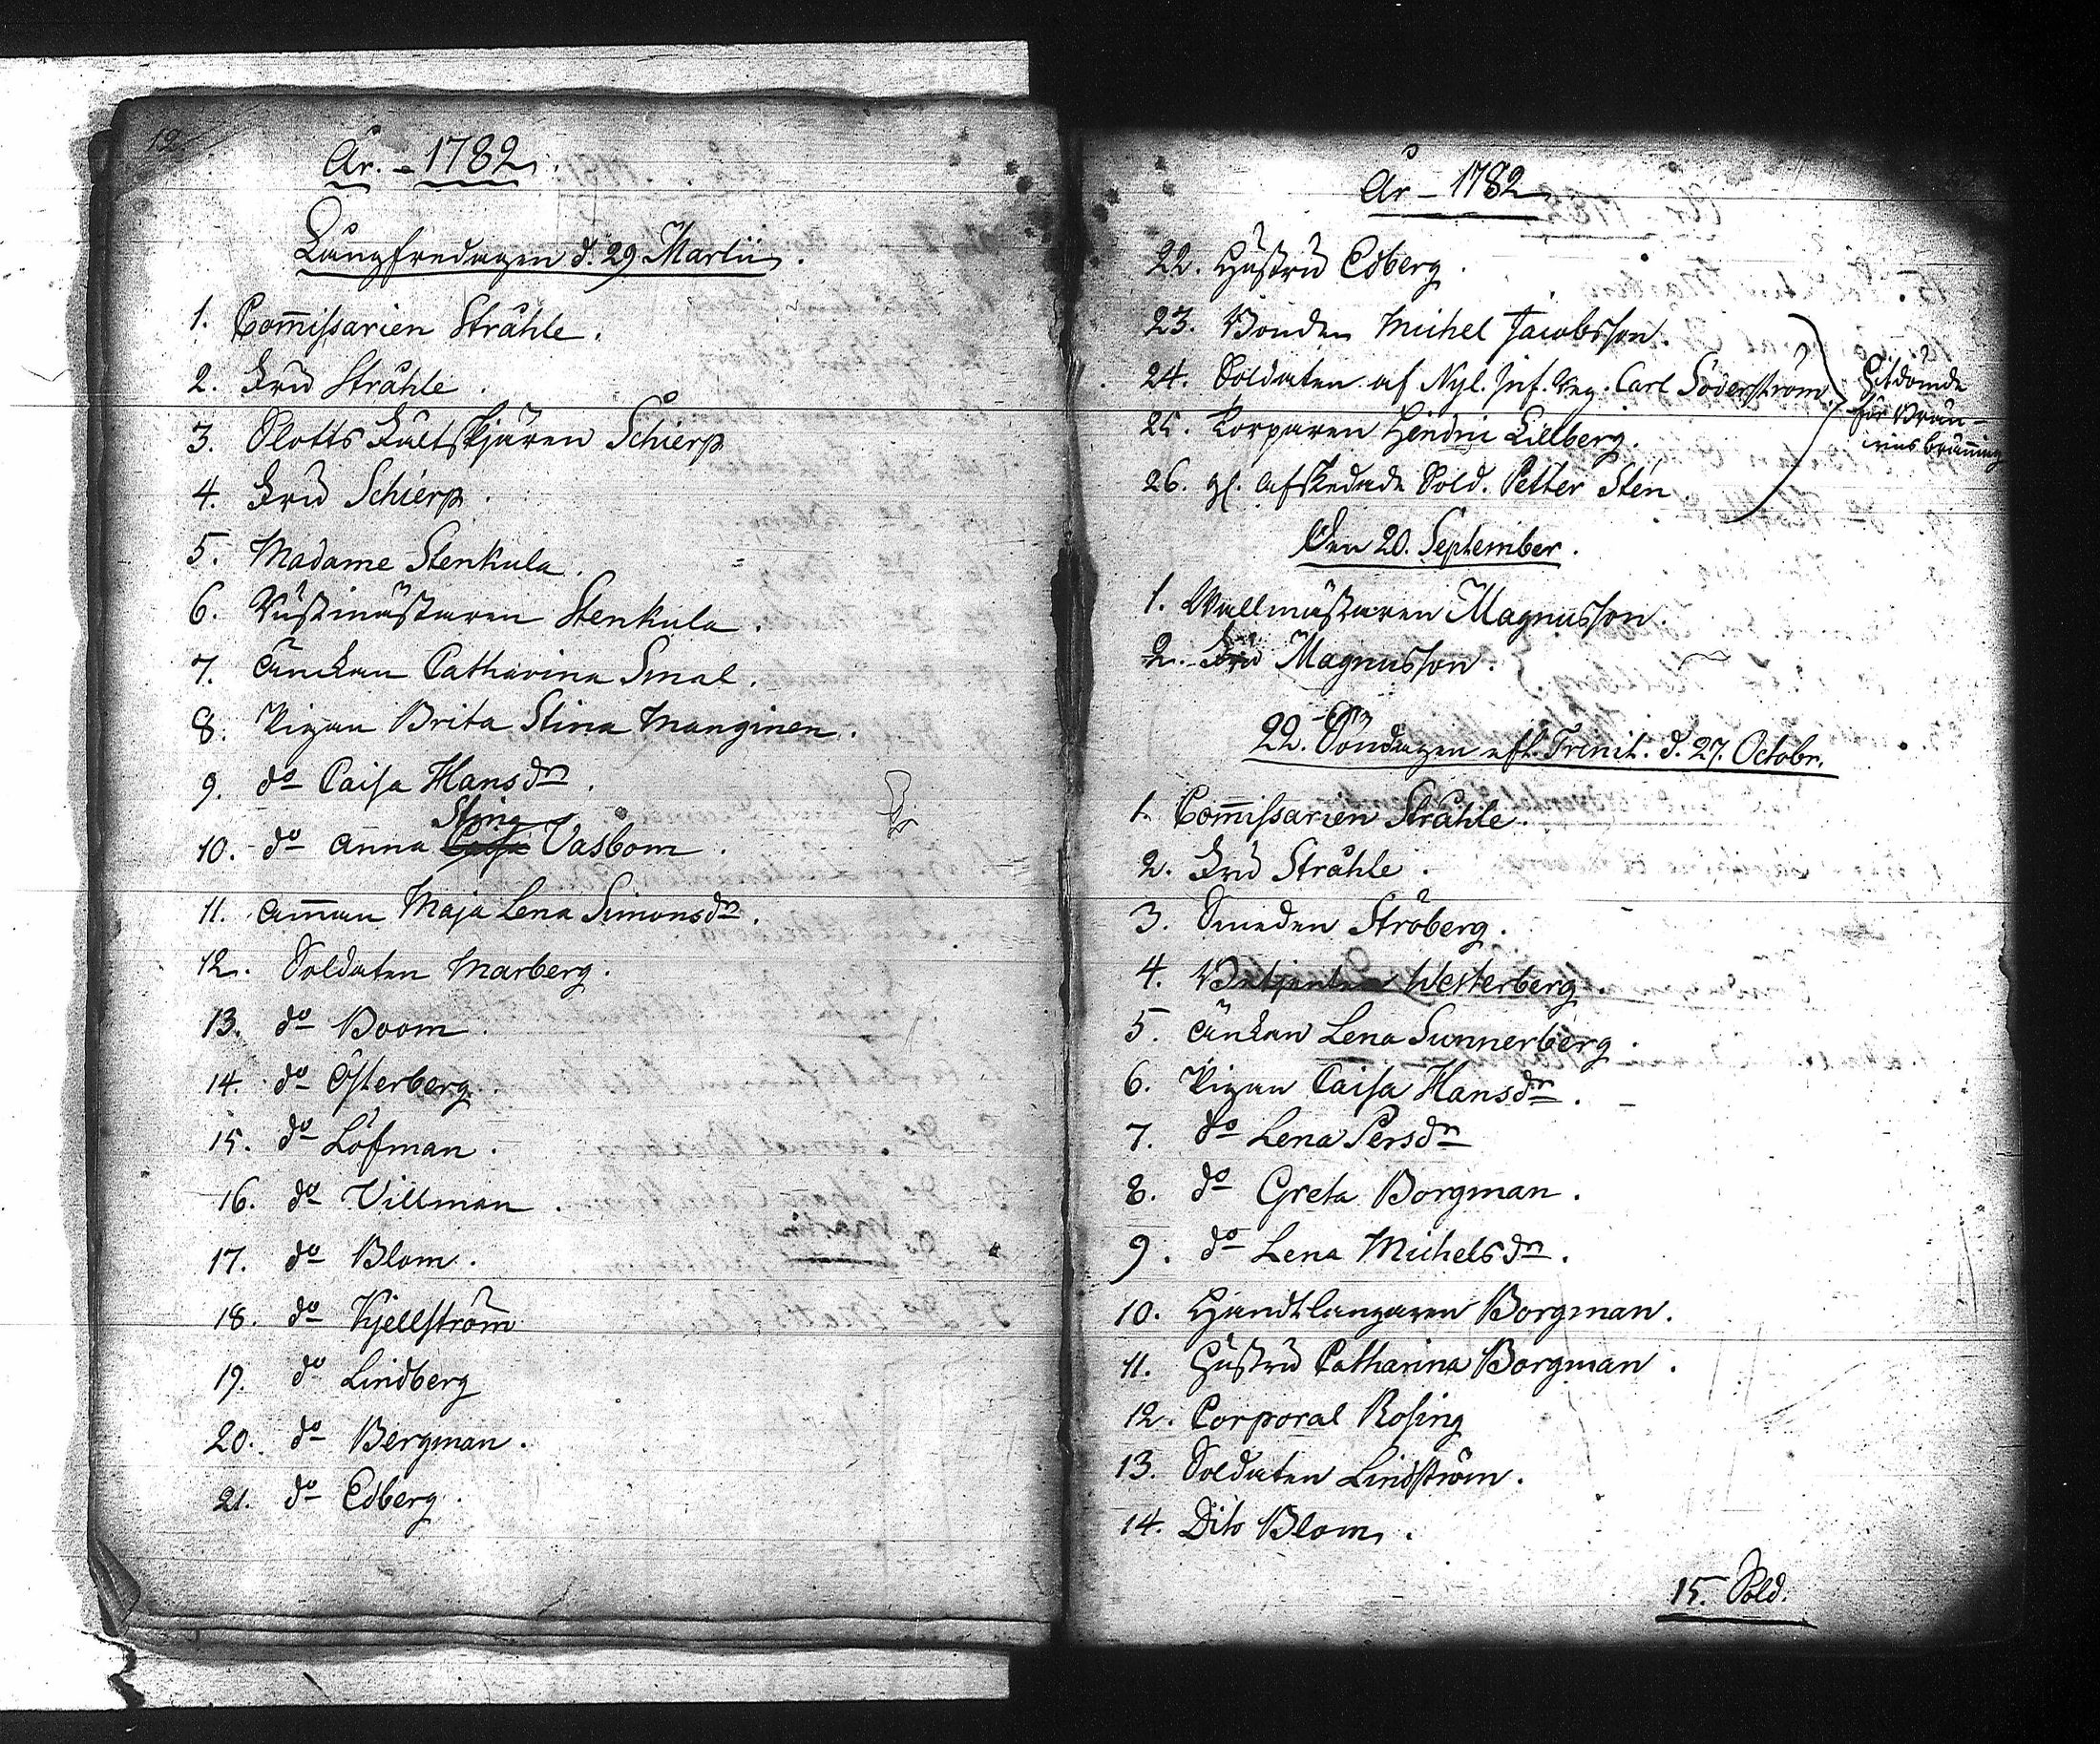 12.
År. - 1782.
Långfredagen d. 29 Martii.
1. Com̅issarien Stråhle.
2. Fru Stråhle.
3. Slotts Fältskjären Schierp
4. Fru Schierp.
5. Madame Stenkula.
6. Rustmästaren Stenkula.
7. Änckan Catharina Smal.
8. Pigan Brita Stina Manginen.
9. do Caisa Hansdr.
Stina
10. do Anna Caisa Vasbom.
11. Am̅an Maja Lena Simonsdr.
12. Soldaten Marberg.
13. do Boom.
14. do Österberg.
15. do Löfman.
16. do Villman.
17. do Blom.
18. do Kjellström
19. do Lindberg
20. do Bergman.
21. do Edberg.
År - 1782
22. Hustru Edberg.
23. Bonden Michel Jacobsson.
24. Soldaten af Nyl. Inf. Reg. Carl Söderström.
25. Korparen Hendric Lilberg.
26. gl. Afskedade Sold. Petter Sten.
för Brän-
vins bränning
Den 20. September.
1. Wallmästaren Magnusson.
2. Fru Magnusson.
22. Söndagen eft. Trinit. d. 27. Octobr.
1. Com̅issarien Stråhle.
2. Fru Stråhle.
3. Smeden Ströberg.
4. Betjenten Westerberg.
5. Änkan Lena Sunnerberg.
6. Pigan Caisa Hansdr.
7. do Lena Persdr
8. do Greta Borgman.
9. do Lena Michelsdr.
10. Handtlangaren Borgman.
11. Hustru Catharina Borgman.
12. Corporal Rosing
13. Soldaten Lindström.
14. Dito Blom.
15. Sold.